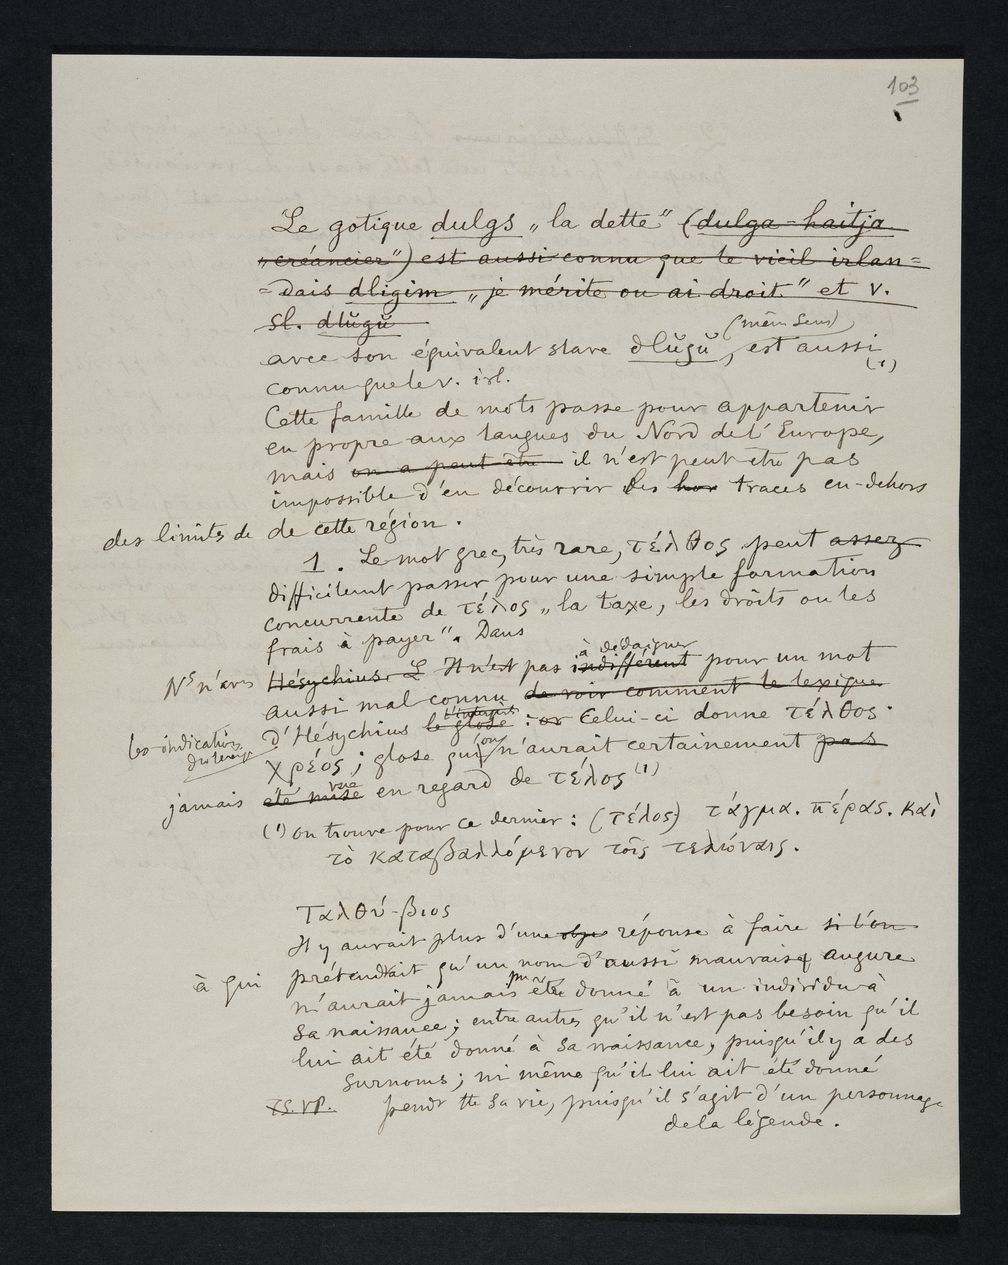 103
Le gotique dulgs „la dette" (dulga-haitja
„créancier") est aussi connu que le vieil irlan=
=dais dligim „je mérite ou ai droit" et v.
sl. dlŭgŭ
(même sens)
avec son équivalent slave dlŭgŭ, est aussi
(1)
connu que le v. irl.
Cette famille de mots passe pour appartenir
en propre aux langues du Nord de l'Europe,
mais on a peut être il n'est peut-être pas
impossible d'en découvrir des hor traces en-dehors
des limites de de cette région.
1. Le mot grec, très rare, τέλθος peut assez
difficilement passer pour une simple formation
concurrente de τέλος „la taxe, les droits ou les
frais à payer". Dans
à dédaigner
Ns n'avons Hésychius. L Il n'est pas indifférent pour un mot
aussi mal connu de voir comment le lexique
les indications d'Hésychius le glose : or Celui-ci donne τέλθος·
du lexique
χρέος; glose qu'on n'aurait certainement pas
jamais été mise en regard de τέλος (1)
(1) on trouve pour ce dernier: (τέλος) τάγμα. πέρας. καὶ
τὸ καταβαλλόμενον τοῖς τελώναις.
Ταλθύ-βιος
Il y aurait plus d'une obje réponse à faire si l'on
à qui prétendrait qu'un nom d'aussi mauvais augure
pu
n'aurait jamais être donné à un individu à
sa naissance; entre autres qu'il n'est pas besoin qu'il
lui ait été donné à sa naissance, puisqu'il y a des
surnoms; ni même qu'il lui ait été donné
T.S.V.P. pendt tte sa vie, puisqu'il s'agit d'un personnage
de la légende.